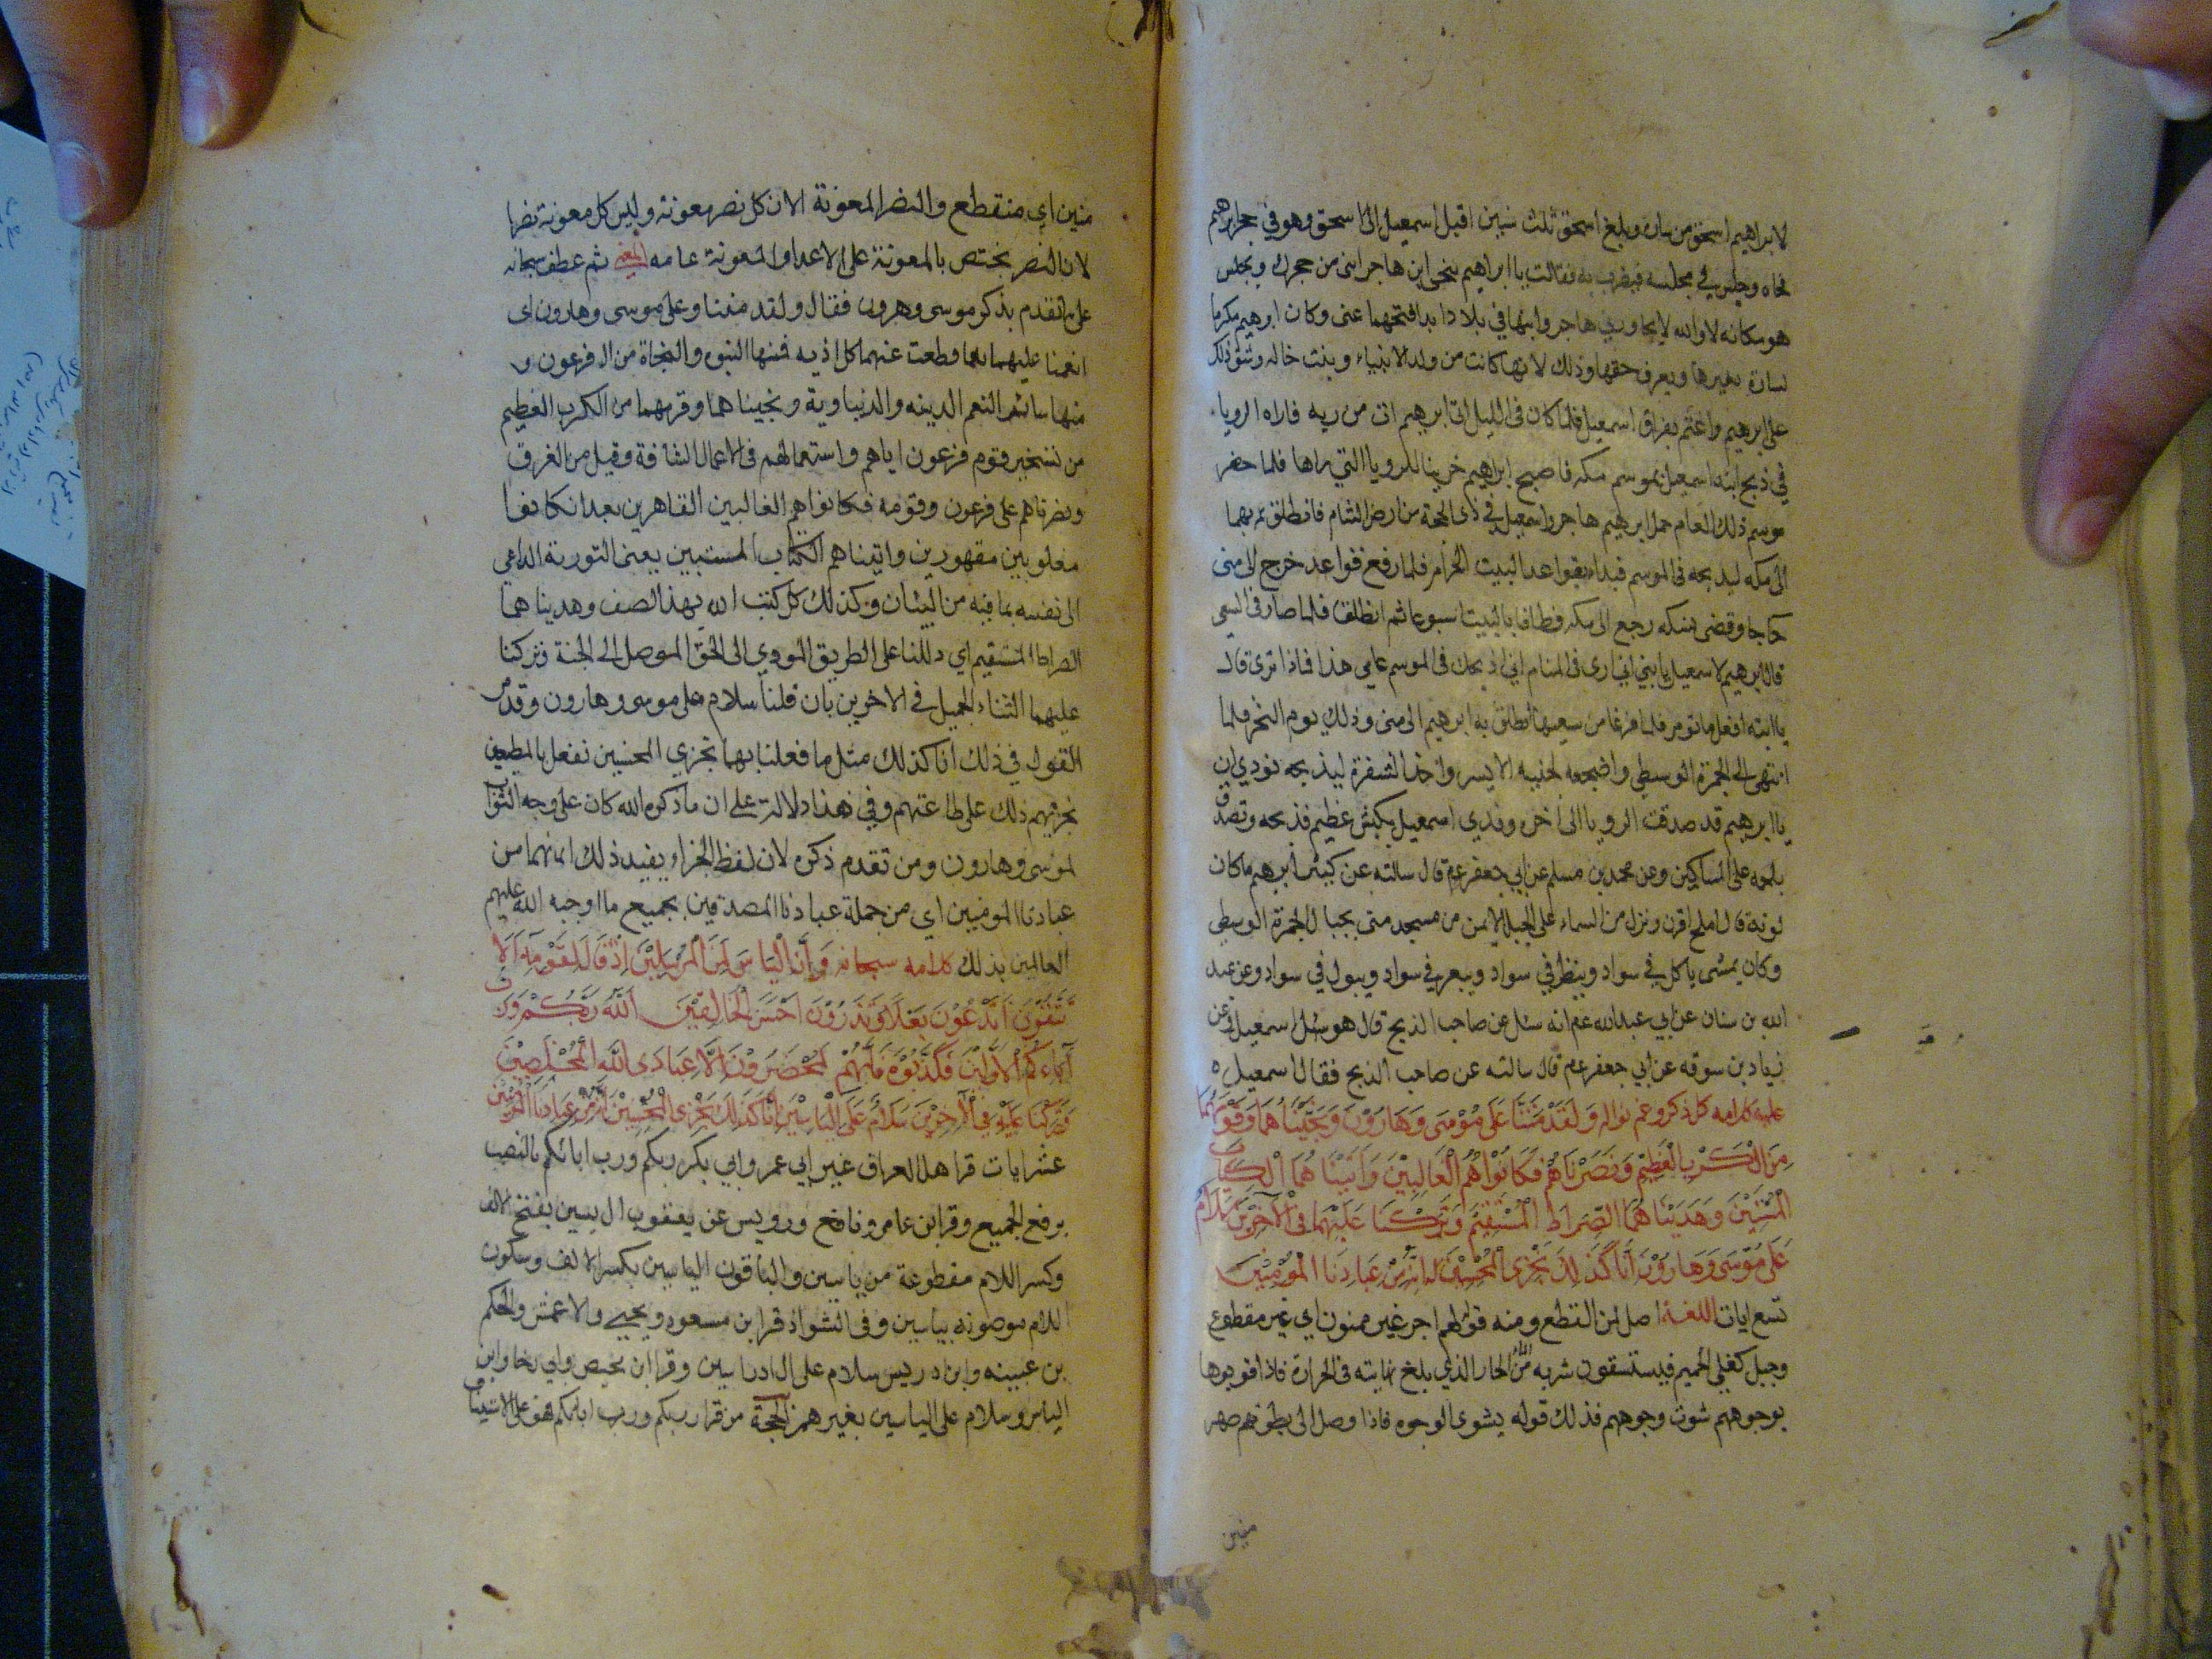 لابراهيم اسحق من سارة وبلغ اسحق ثلث سنين اقبل اسمعيل الى اسحق وهو في حجر ابرهيم
فحاه وجلس في مجلسه فبصرت به فقالت يا ابراهيم ينحى ابن هاجر ابنى من حجرك ويجلس
هو مكانه لا والله لا يجاورني هاجر وابنها في بلاد ابدا فنحهما عنى وكان ابرهيم مكرما
لسارة يعزها ويعرف حقها وذلك لانها كانت من ولد الانبياء وبنت خاله وشق ذلك
على ابرهيم واغتم بفراق اسمعيل فلما كان في الليل اتى ابرهيم ات من ربه فاراه الرويا
في ذبح ابنه اسمعيل بموسم مكه فاصبح ابراهيم حزينا للرويا التي راها فلما حضر
موسم ذلك العام حمل ابرهيم هاجر واسمعيل في ذى الحجة من ارض الشام فانطلق بهما
الى مكه ليذبحه في الموسم فبدا بقواعد البيت الحرام فلما رفع قواعده خرج الى منى
حاجا وقضى نسكه رجع الى مكه فطافا بالبيت اسبوعا ثم انطلقا فلما صار في السعى
قال ابرهيم لاسمعيل يا بني اني ارى في المنام اني اذبحك في الموسم عامي هذا فماذا ترى قال
يا ابته افعل ما تومر فلما فرغا من سعيهما انطلق به ابرهيم الى منى وذلك يوم النحر فلما
انتهى الى الجمرة الوسطى واضجعه لجنبه الايسر واخذ الشفرة ليذبحه نودي ان
يا ابرهيم قد صدقت الرويا الى اخره وفدي اسمعيل بكبش عظيم فذبحه وتصدق
بلحمه على المساكين وعن محمد بن مسلم عن ابي جعفر عم قال سالته عن كبش ابرهيم ما كان
لونه قال املح اقرن ونزل من السماء على الجبل الايمن من مسجد منى بجبال الجمرة الوسطى
وكان يمشى ياكل في سواد وينظر في سواد ويبعر في سواد ويبول في سواد وعن عبد
الله بن سنان عن ابي عبدالله عم انه سئل عن صاحب الذبح قال هو اسمعيل وعن
زياد بن سوقه عن ابي جعفر عم قال سالته عن صاحب الذبح فقال اسمعيل ه
عليه كلامه كل ذكر وعم نواله وَلَقَدْ مَنَنَّا عَلَى مُوْسَى وَهَارُوْنَ وَنَجَّيْنَاهُمَا وَقَوْمَهُمَا
مِنَ الْكَرْبِ الْعَظِيْمِ وَنَصَرْنَاهُمْ فَكَانُوْا هُمُ الْغَالِبِيْنَ وَآتَيْنَاهُمَا الْكِتَابَ
الْمُسْتَبِيْنَ وَهَدَيْنَاهُمَا الصِّرَاطَ الْمُسْتَقِيْمَ وَتَرَكْنَا عَلَيْهِمَا فِى الْآخِرِيْنَ سَلَامٌ
عَلَى مُوْسَى وَهَارُوْنَ اِنَّا كَذَلِكَ نَجْزِى الْمُحْسِنِيْنَ اِنَّهُمَا مِنْ عِبَادِنَا الْمُؤْمِنِيْنَ
تسع ايات اللغة اصل المن القطع ومنه قولهم اجر غير ممنون اي غير مقطوع
وحبل الحميم فيستسقون شربه من الحار الذي بلغ نهايته في الحرارة فاذا قربوها
بوجوههم شوت وجوههم فذلك قوله يشوى الوجوه فاذا وصل الى بطونهم صهر
منين
منين اي منقطع والنصر المعونة الا ان كل نصر معونة وليس كل معونة نصرا
لان النصر يختص بالمعونة على الاعداء والمعونة عامه المعنى ثم عطف سبحانه
على ما تقدم بذكر موسى وهرون فقال ولقد مننا على موسى وهارون اى
انعمنا عليهما نعما قطعت عنهما كل اذيه فمنها النبوه والنجاة من ال فرعون و
منها سائر النعم الدينيه والدنياوية ونجيناهما وقومهما من الكرب العظيم
من تسخير قوم فرعون اياهم واستعمالهم في الاعمال الشاقة وقيل من الغرق
ونصرناهم على فرعون وقومه فكانوا هم الغالبين القاهرين بعد ان كانوا
مغلوبين مقهورين واتيناهم الكتاب المستبين يعني التورية الداعي
الى نفسه بما فيه من البيان وكذلك كل كتب الله بهذا الصف وهديناهما
الصراط المستقيم اي دللنا على الطريق المودي الى الحق الموصل الى الجنة وتركنا
عليهما الثناء الجميل في الاخرين بان قلنا سلام على موسى وهارون وقد مر
القول في ذلك انا كذلك مثل ما فعلنا بهما نجزي المحسنين نفعل بالمطيعين
نجزيهم ذلك على طاعتهم وفي هذا دلالة على ان ما ذكره الله كان على وجه الثواب
لموسى وهارون ومن تقدم ذكره لان لفظ الجزاء يفيد ذلك انهما من
عبادنا المومنين اي من جملة عبادنا المصدقين بجميع ما اوجبه الله عليهم
العالمين بذلك كلامه سبحانه وَاِنَّ اِلْيَاسَ لَمِنَ الْمُرْسَلِيْنَ اِذْ قَالَ لِقَوْمِهِ اَلَا
تَتَّقُوْنَ اَتَدْعُوْنَ بَعْلًا وَتَذَرُوْنَ اَحْسَنَ الْخَالِقِيْنَ اَللّٰهُ رَبُّكُمْ وَرَبُّ
آبَاءِكُمُ الْاَوَّلِيْنَ فَكَذَّبُوْهُ فَاِنَّهُمْ لَمُحْضَرُوْنَ اِلَّا عِبَادَ اللّٰهِ الْمُخْلَصِيْنَ
وَتَرَكْنَا عَلَيْهِ فِي الْآخِرِيْنَ سَلَامٌ عَلَى اِلْيَاسِيْنَ اِنَّا كَذَلِكَ نَجْزِى الْمُحْسِنِيْنَ اِنَّهُ مِنْ عِبَادِنَا الْمُؤْمِنِيْنَ
عشر ايات قرا اهل العراق غير ابي عمرو وابي بكر ربكم ورب ابائكم بالنصب
برفع الجميع وقرا ابن عامر ونافع ورويس عن يعقوب ال يسين بفتح الالف
وكسر اللام مقطوعة من ياسين والباقون الياسين بكسر الالف وسكون
اللام موصولة بياسين وفى الشواذ قرا ابن مسعود ويحيى والاعمش والحكم
بن عيينه وان ادريس سلام على ال ادراسين وقرا ابن محيص وابي رجا وان
الياس وسلام على الياسين بغير همز الحجة من قرا ربكم ورب ابائكم فهو على الاستيناف